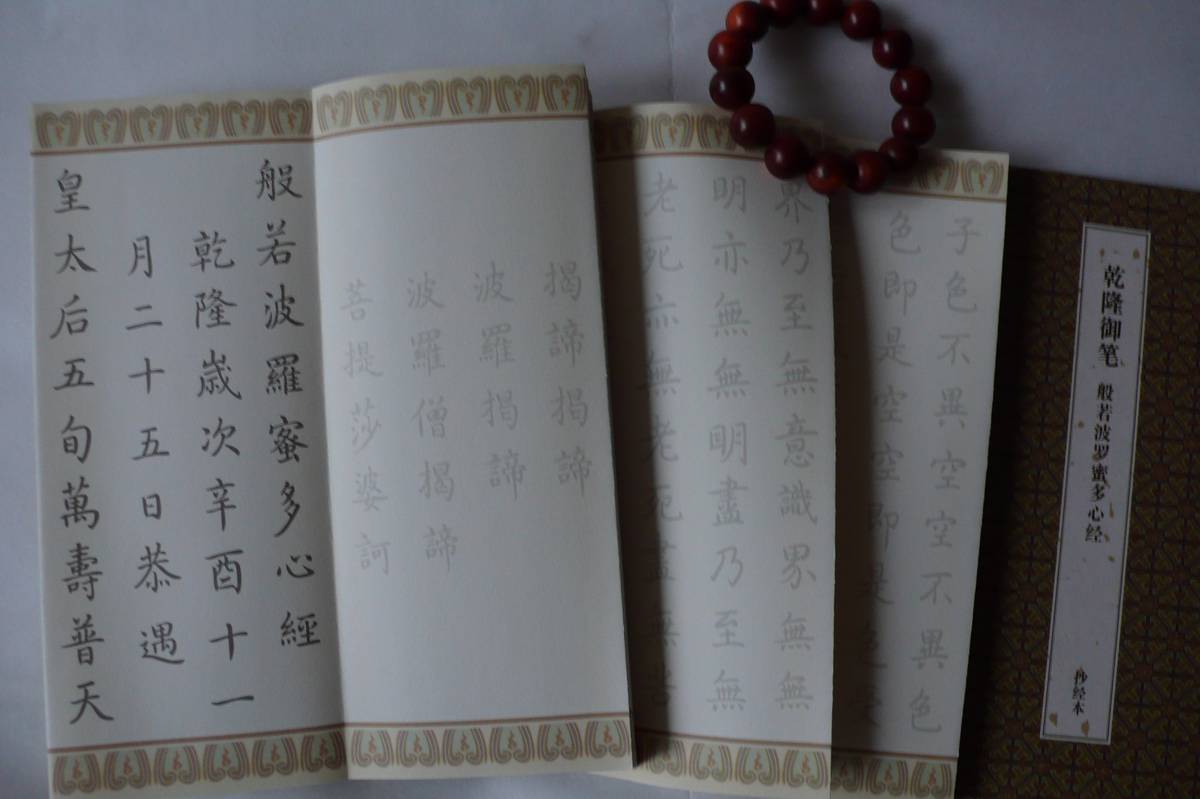 乾隆御笔
般若波罗蜜多心经
抄经本
子色不異空空不異色
色即是空空即是色受
界乃至無意識界無無
明亦無無明盡乃至無
老死亦無老死盡無苦
揭諦揭諦
波羅揭諦
波羅僧揭諦
菩提莎婆訶
般若波羅蜜多心經
乾隆歲次辛酉十一
月二十五日恭遇
皇太后五旬萬壽普天